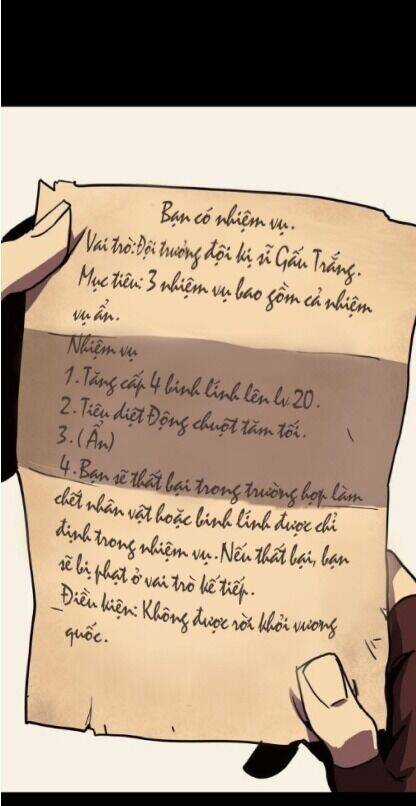 Bạn có nhiệm vụ.
Vai trò:Đội trưởng đội kị sĩ Gấu Trắng.
Mục tiêu: 3 nhiệm vụ bao gồm cả nhiệm
vụ ẩn.
Nhiệm vụ
1. Tăng cấp 4 binh lính lên lv 20.
2. Tiêu diệt Động chuột tăm tối.
3. (Ẩn)
4. Bạn sẽ thất bại trong trường hợp làm
chết nhân vật hoặc binh lính được chỉ
định trong nhiệm vụ. Nếu thất bại, bạn
sẽ bị phạt ở vai trò kế tiếp.
Điều kiện: Không được rời khỏi vương
quốc.